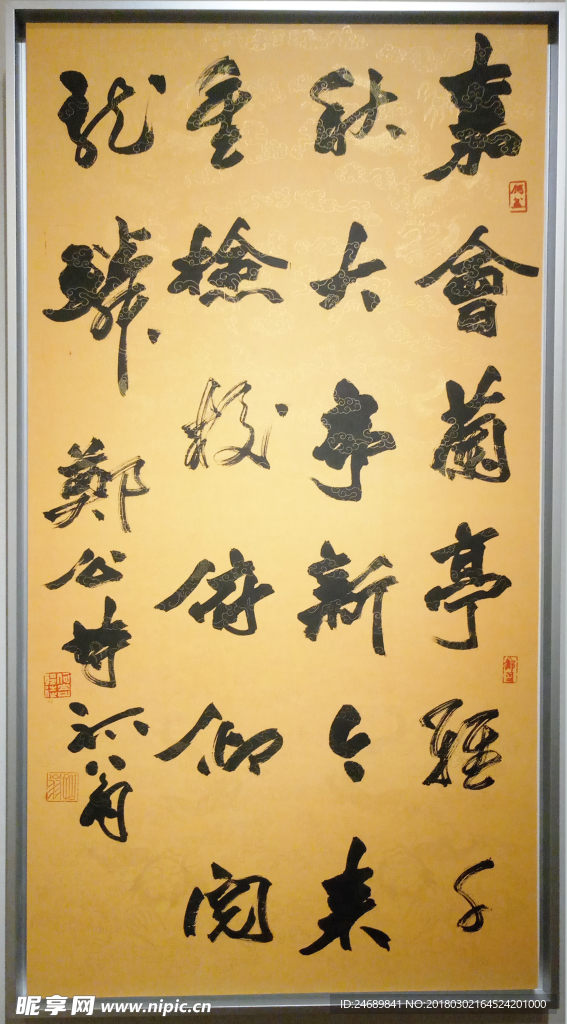 嘉會蘭亭經千
秋大年新今來
重檢校俯仰閱
龍
鄭公詩
昵享网 www.nipic.cn
ID:24689841 NO:20180302164524201000